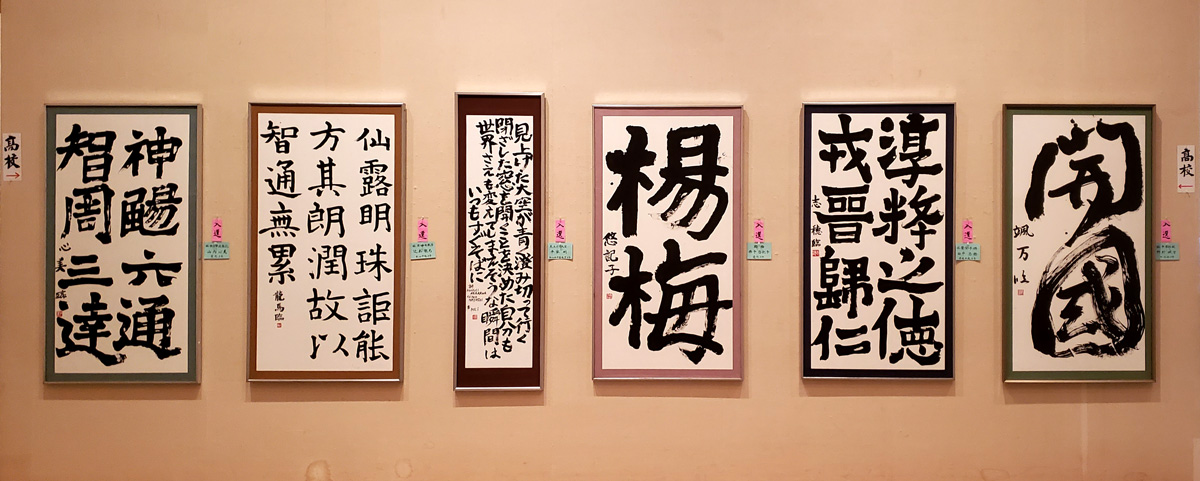 高校
神暢六通
智周三達
心美臨
入選
仙露明珠詎能
方其朗潤故以
智通無累
龍馬臨
入選
見上げた大空が青く澄み切って行く
閉ざした窓を開くことを決めた自分も
世界さえも変えてしまえそうな瞬間は
いつもすぐそばに
入選
楊梅
悠記子
入選
淳粹之徳
戎晋歸仁
志穂臨
入選
開國
颯万
入選
高校